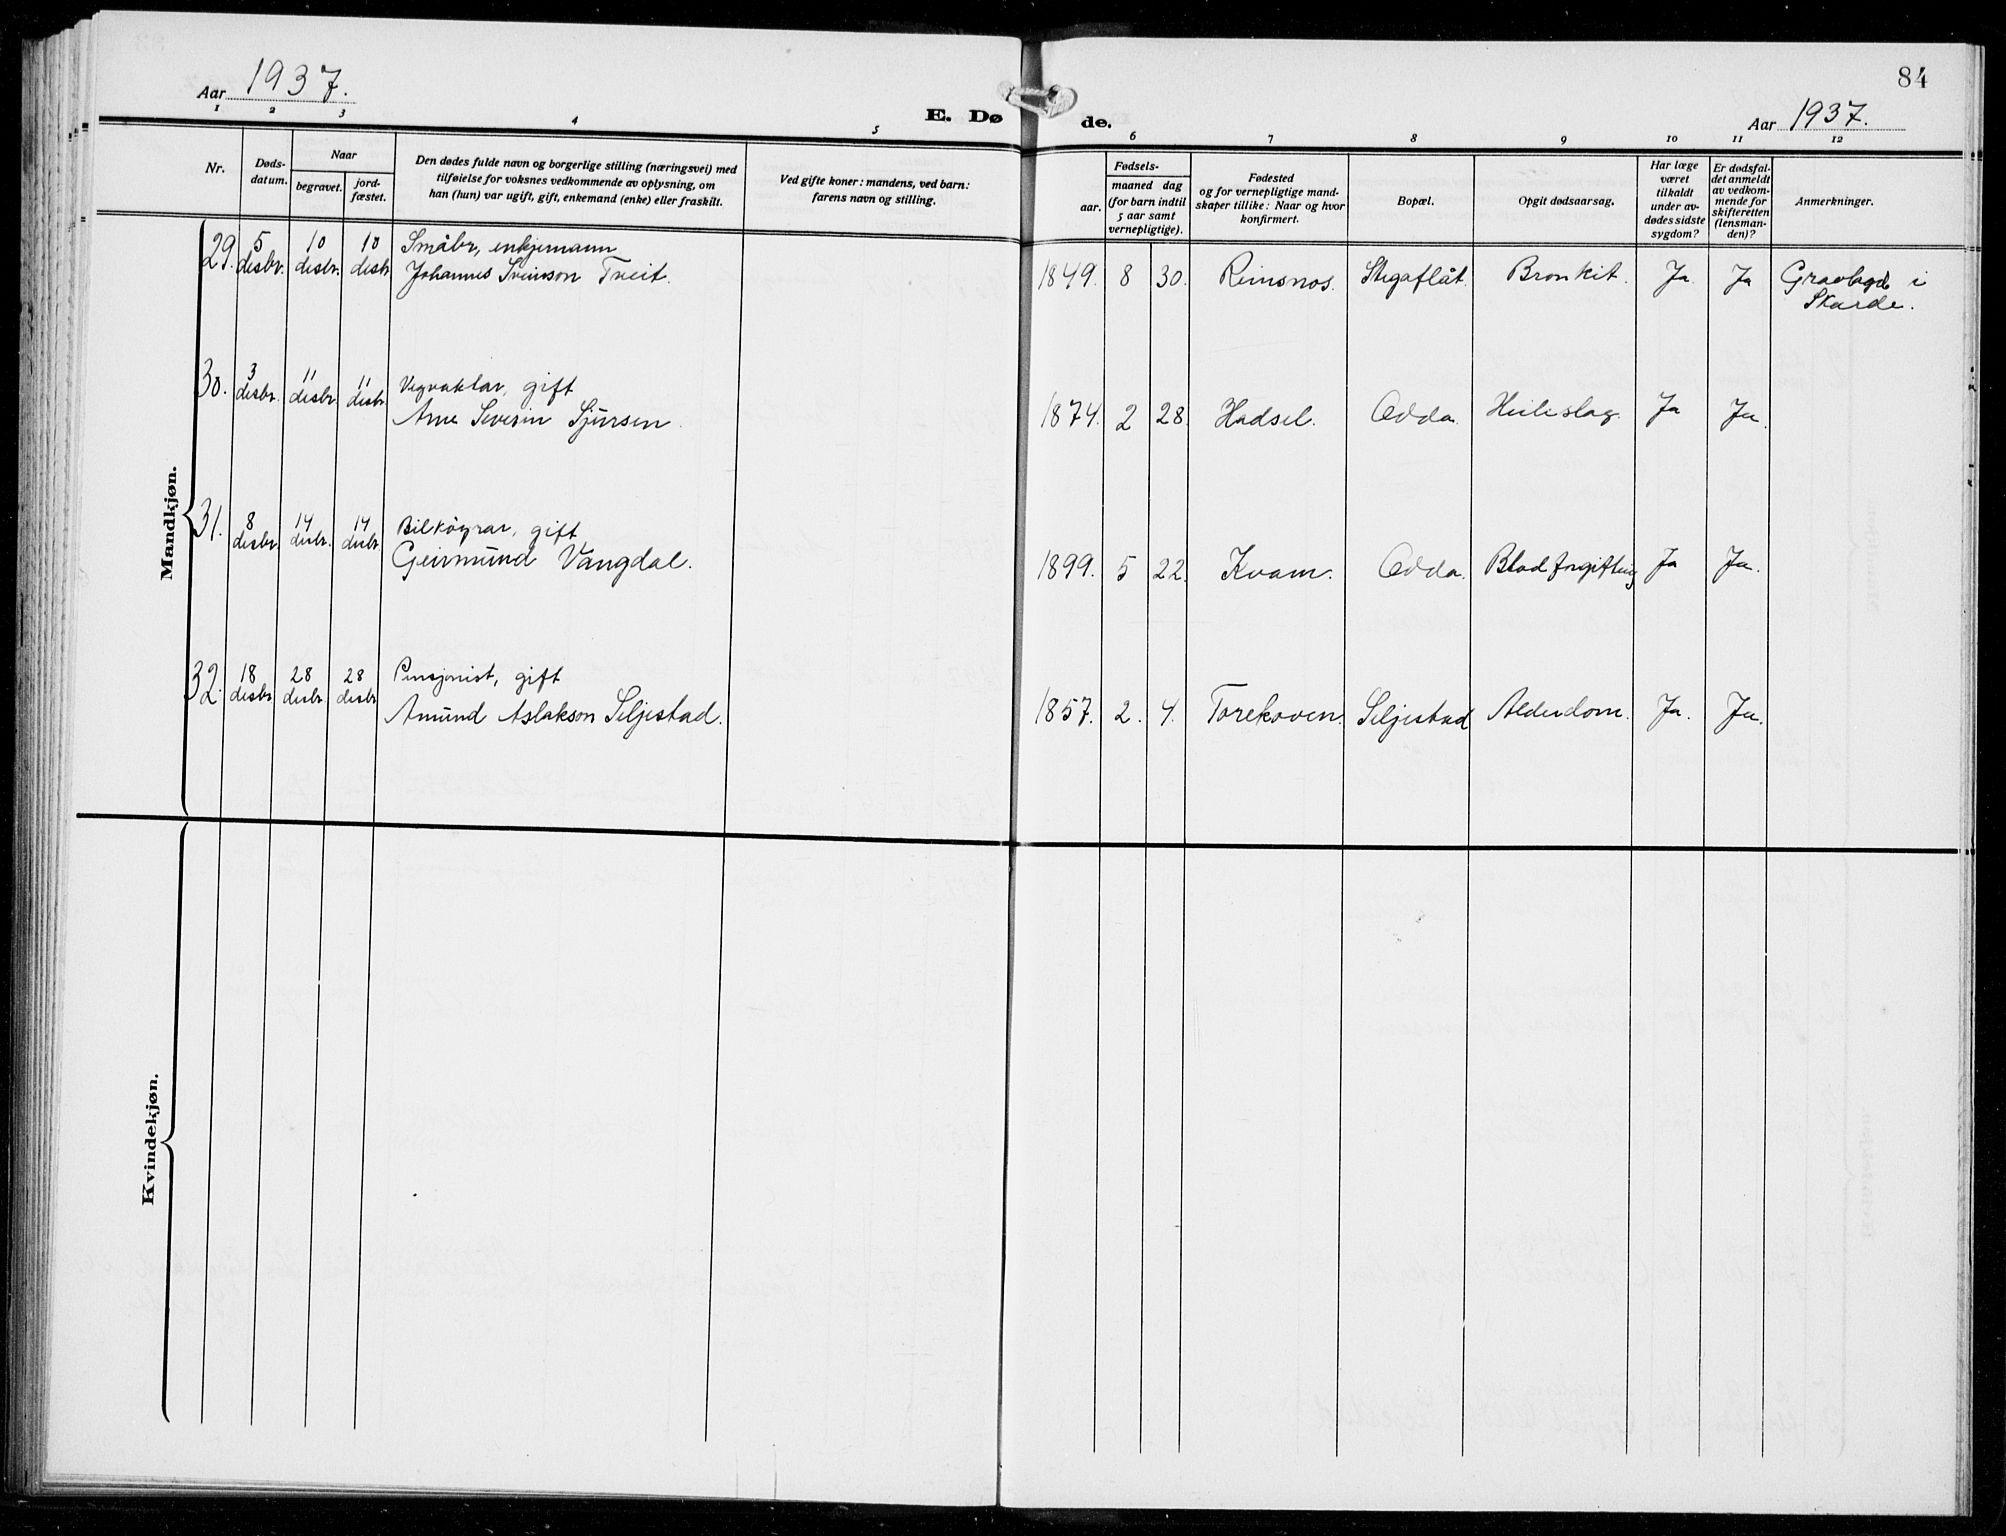 Aar 1937.
E. Døde.
84
Aar 1937.
1 2 3 4 5 6 7 8 9 10 11 12
Nr.
Døds-
datum.
Naar
begravet.
jord-
fæstet.
Den dødes fulde navn og borgerlige stilling (næringsvei) med
tilføielse for voksnes vedkommende av oplysning, om
han (hun) var ugift, gift, enkemand (enke) eller fraskilt.
Ved gifte koner: mandens, ved barn:
farens navn og stilling.
Fødsels-
aar.
maaned dag
(for barn indtil
5 aar samt
vernepligtige).
Fødested
og for vernepligtige mand-
skaper tillike: Naar og hvor
konfirmert.
Bopæl.
Opgit dødsaarsag.
Har læge
været
tilkaldt
under av-
dødes sidste
sygdom?
Er dødsfal-
det anmeldt
av vedkom-
mende for
skifteretten
(lensman-
den)?
Anmerkninger.
Mandkjøn.
29. 5 10 10 Småbr, enkjemann
desbr. desbr. desbr Johannes Sveinson Tveit. 1849. 8 30. Reinsnos. Stegaflåt Bronkit. Ja Ja Gravlagd i
Skarde.
30. 3 11 11 Vegvaktar, gift
desbr. desbr. desbr Arne Severin Sjursen. 1874. 2 28. Hadsel. Odda. Heileslag. Ja Ja.
31. 8 14 14 Bilköyrar, gift
desbr. desbr. desbr Geirmund Vangdal. 1899. 5 22. Kvam. Odda. Blodforgiftning Ja Ja.
32. 18 28 28 Pensjonist, gift
desbr desbr. desbr Amund Aslakson Seljestad. 1857. 2. 4. Seljestad Alderdom. Ja. Ja.
Kvindekjøn.